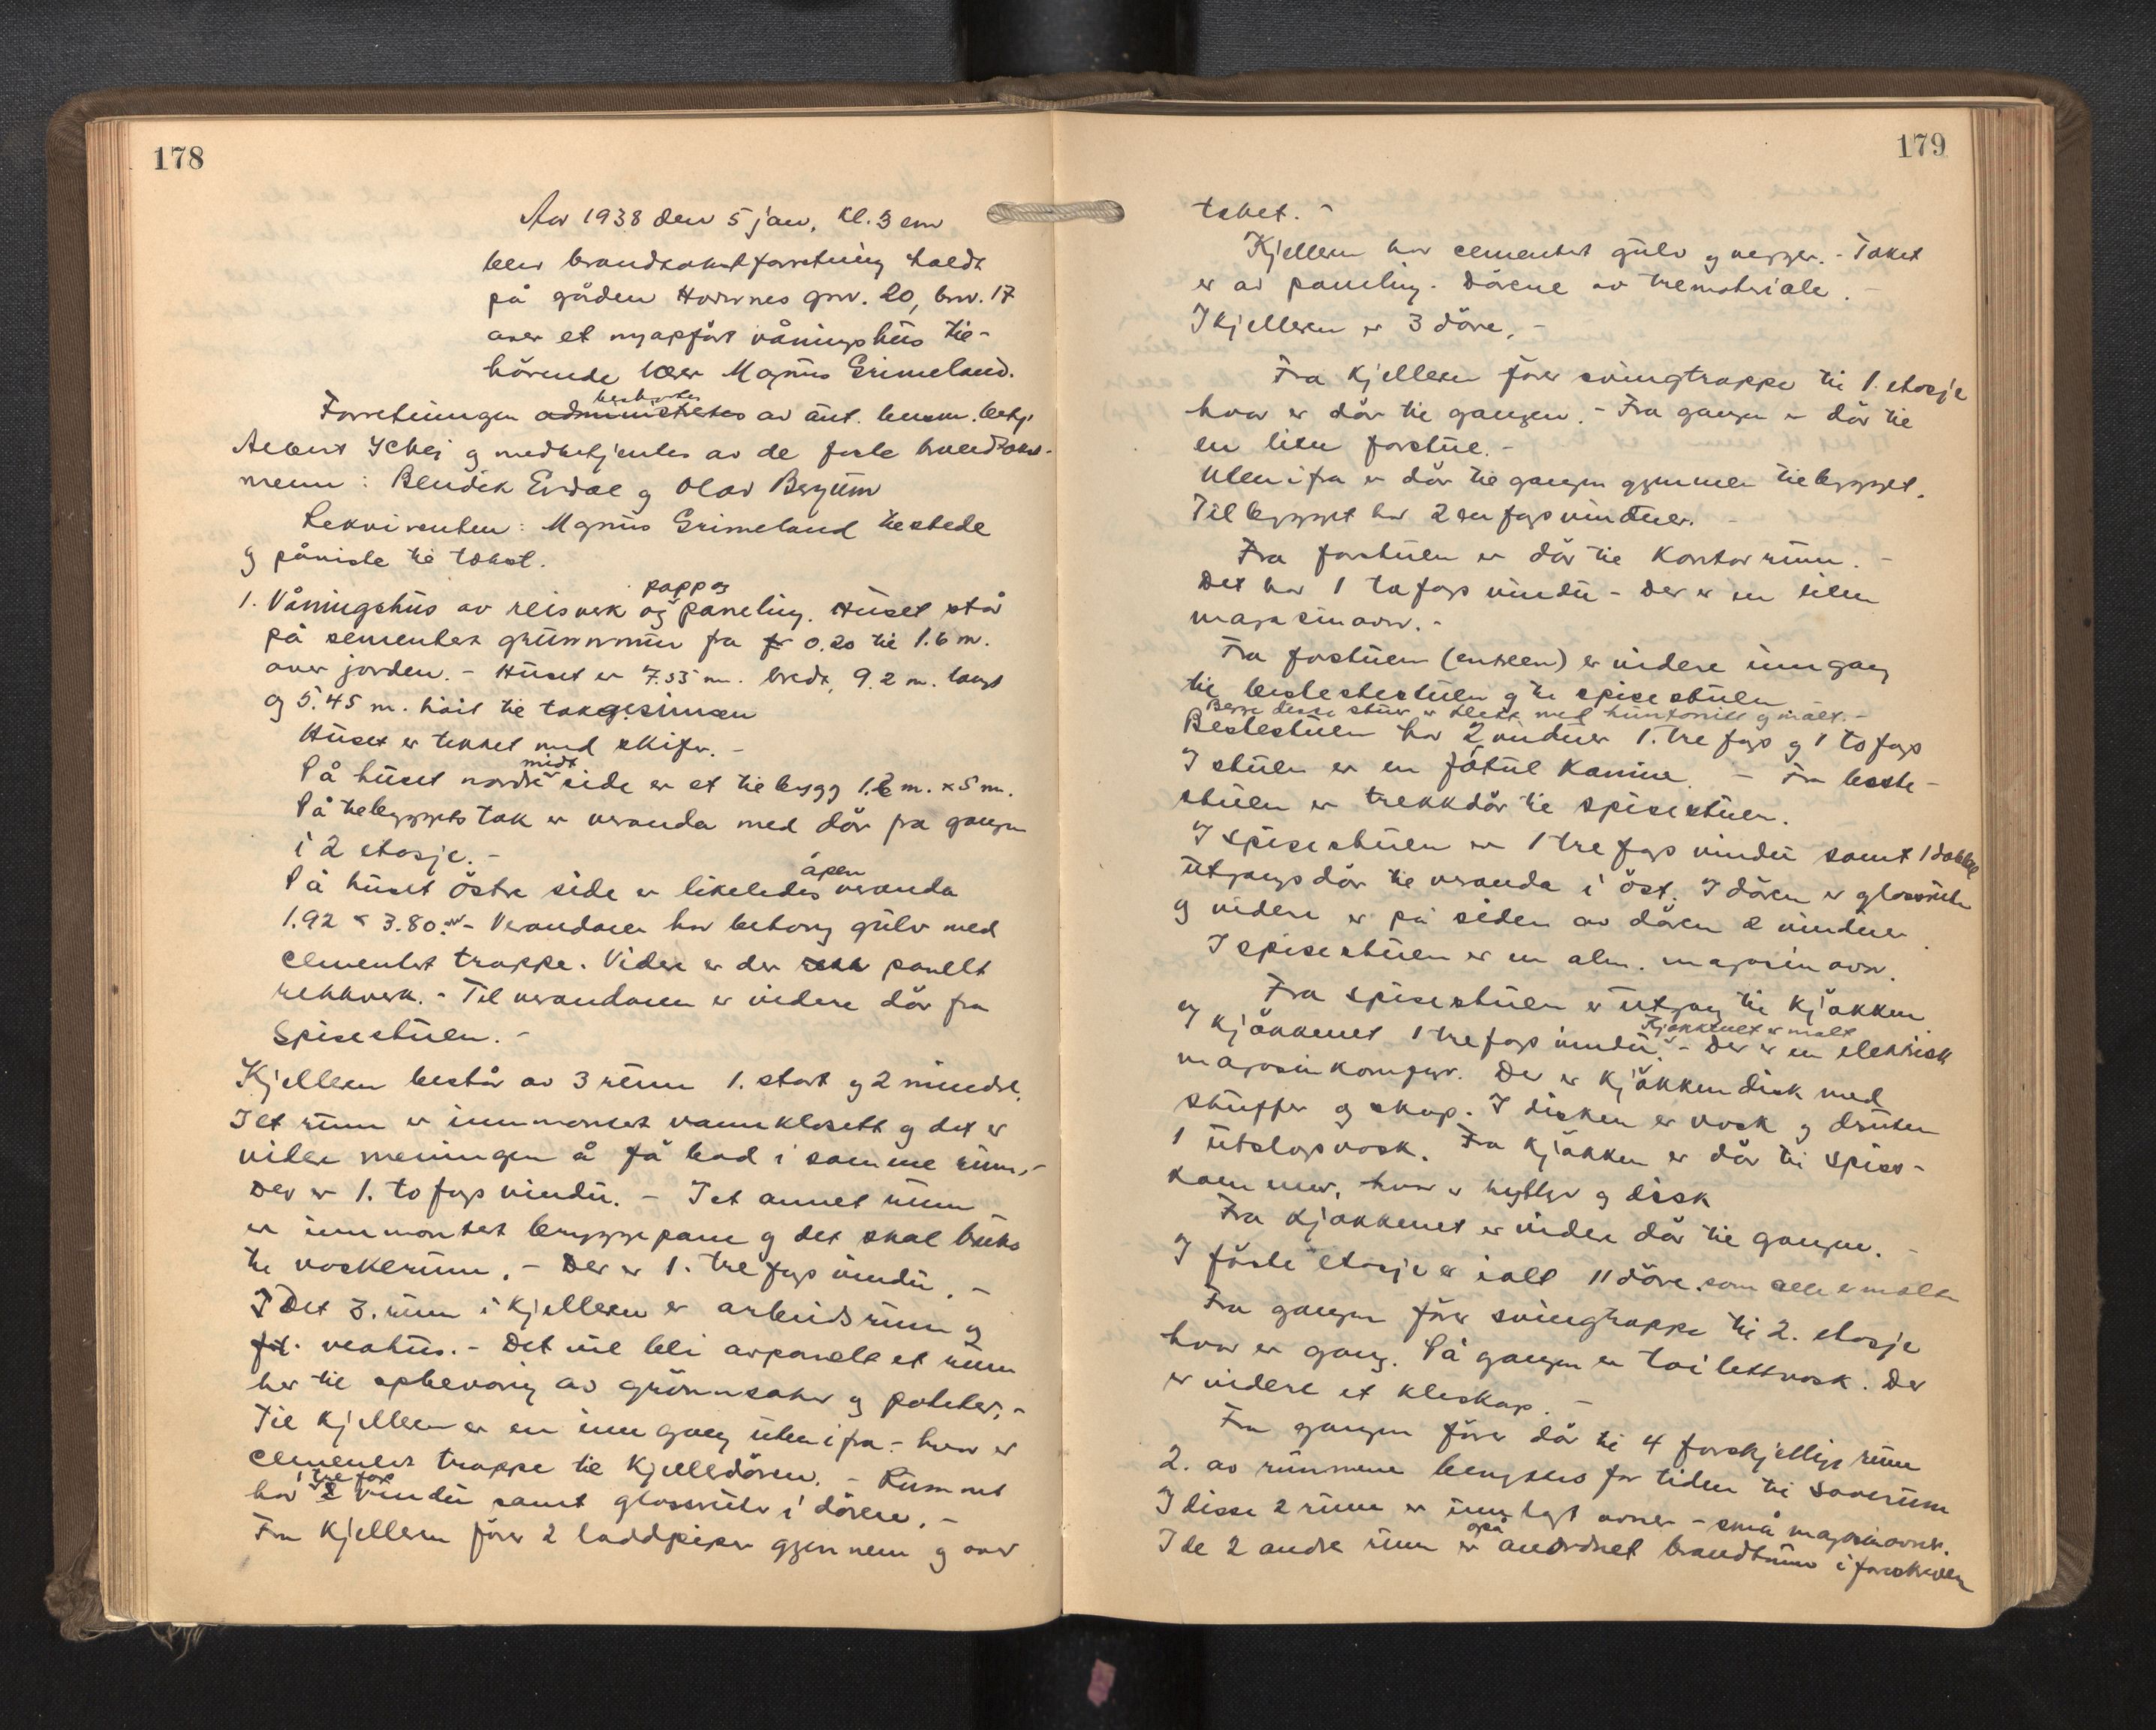 178
Aar 1938 den 5 jan, kl. 3 em
blev brandtakstforretning holdt
på gården Hovnes gnr. 20, bnr. 17
over et nyopført våningshus til-
hörende lærer Magnus Grimeland.
Forretningen administretes bestyrtes av ant. lensm. betj.
Albert Schei og medbetjentes av de faste brandtakst-
menn: Bendik Erdal og Olav Bergum
Rekvirenten: Magnus Grimeland tilstede
og påviste til takst.
1. Våningshus av reisverk og papp og paneling. Huset står
på sementert grunnmur fra fr 0.20 til 1.6 m.
over jorden. - Huset er 7.55 m. bredt, 9.2 m. langt
og 5.45 m. höit til takgesimsen
Huset er tekket med skifer. -
På huset nordre midt side er et tilbygg 1.6 m. x 5 m.
På tilbyggets tak er veranda med dör fra gangen
i 2 etasje. -
På huset östre side er likeledes åpen veranda
1.92 x 3.80 m - Verandaen har betong gulv med
cementert trappe. Videre er der rekk panelt
rekkverk. - Til verandaen er videre dör fra
Spisestuen. -
Kjelleren består av 3 rum 1. stort og 2 mindre.
I et rum er innmontert vannklosett og det er
videre meningen å få bad i samme rum. -
Der er 1. to fags vindu. - I et annet rum
er innmontert bryggepane og det skal bukes
til vaskerum. - Der er 1. tre fags vindu. -
I Det 3. rum i kjelleren er arbeidsrum og
vedhus. - Det vil bli avpanelt et rum
her til opbevaring av grönnsaker og poteter. -
Til kjelleren er en inngang utenifra - hvor er
cementert trappe til kjellerdören. - Rummet
har 1 tre fags vindu samt glassrute i dörene. -
Fra kjelleren förer 2 laddpiper gjennem og over
179
taket. -
Kjelleren har cementert gulv og vegger. - Taket
er av paneling. Dörene av tremateriale. -
I kjelleren er 3 döre. -
Fra kjelleren förer svingtrappe til 1. etasje
hvor er dör til gangen. - Fra gangen er dör til
en liten forstue. -
Utenifra er dör til gangen gjennem tilbygget.
Tilbygget har 2 en fags vinduer.
Fra forstuen er dör til Kontorrum. -
Det har 1 to fags vindu - Der er en liten
magasinovn. -
Fra forstuen (entreen) er videre inngang
til bestestestuen og til spisestuen
Begge disse stuer er tekket med huntonitt og malt. -
Bestestuen har 2 vinduer 1. tre fags og 1 to fags
I stuen er en Jötul Kamin. - Fra beste-
stuen er trekkdör til spisestuen.
I spisestuen er 1 tre fags vindu samt 1 dobbel
utgangsdör til veranda i öst. I dören er glassruter
og videre er på siden av dören 2 vinduer.
I spisestuen er en alm. magasinovn.
Fra spisestuen er utgang til kjökken
og kjökkenet 1 tre fags vindu. Kjökkenet er malt - Der er en elektrisk
magasinkomfyr. Der er kjökkendisk med
skuffer og skap. I disken er vask og
1 utslagsvask. Fra kjökken er dör til spis-
kammer, hvor er hyller og disk
Fra kjökkenet er videre dör til gangen. -
I förste etasje er ialt 11 döre som alle er malte
Fra gangen förer svingtrappe til 2. etasje
hvor er gang. På gangen er toilettvask. Der
er videre et kleskap. -
Fra gangen förer dör til 4 forskjellige rum
2. av rummene benyttes for tiden til soverum
I disse 2 rum er innlagt ovner - små magasinovner.
I de 2 andre rum er også anordnet brandmur i forskriften